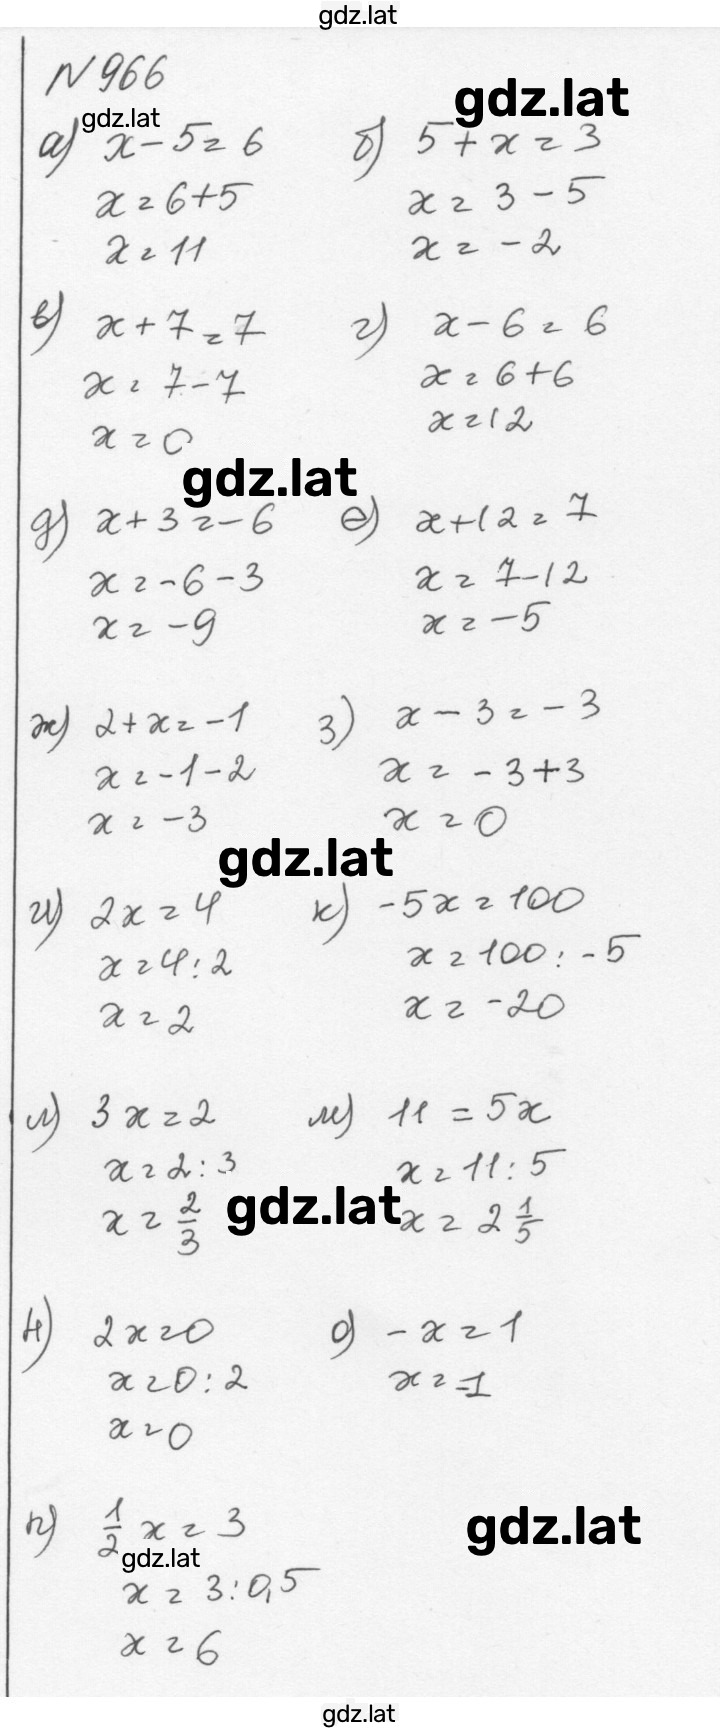 gdz.lat
N 966
gdz.lat
gdz.lat
а) x - 5 = 6
x = 6 + 5
x = 11
б) 5 + x = 3
x = 3 - 5
x = -2
в) x + 7 = 7
x = 7 - 7
x = 0
г) x - 6 = 6
x = 6 + 6
x = 12
gdz.lat
д) x + 3 = -6
x = -6 - 3
x = -9
е) x + 12 = 7
x = 7 - 12
x = -5
ж) 2 + x = -1
x = -1 - 2
x = -3
з) x - 3 = -3
x = -3 + 3
x = 0
gdz.lat
и) 2x = 4
x = 4 : 2
x = 2
к) -5x = 100
x = 100 : -5
x = -20
л) 3x = 2
x = 2 : 3
x = 2/3
gdz.lat
м) 11 = 5x
x = 11 : 5
x = 2 1/5
н) 2x = 0
x = 0 : 2
x = 0
о) -x = 1
x = -1
п) 1/2 x = 3
gdz.lat
x = 3 : 0,5
x = 6
gdz.lat
gdz.lat